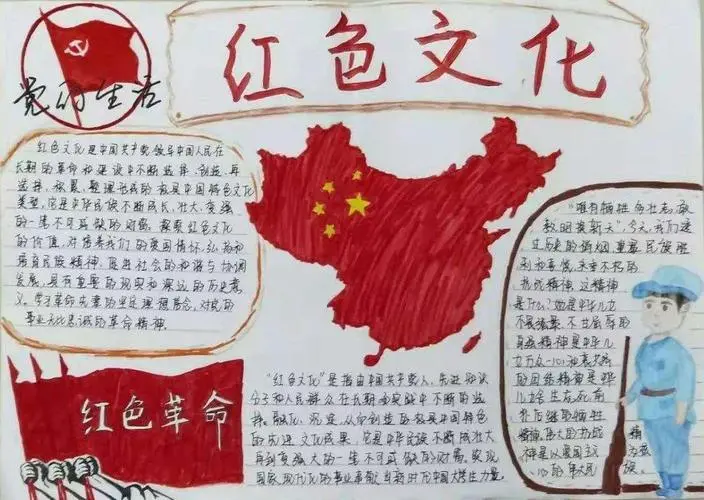 红色文化
党的生活
红色文化是中国共产党领导中国人民在
长期的革命和建设中不断选择、创造、再
选择、积累、整理形成的极具中国特色文化
类型,它是中华民族不断成长、壮大、变强
的一笔不可或缺的财富。探索红色文化
的价值,对培养我们的爱国情怀、弘扬和
培育民族精神,促进社会的和谐与协调
发展,具有重要的现实和深远的历史意
义。学习革命先辈的坚定理想信念、对党的
事业无比忠诚的革命精神。
红色革命
"红色文化"是指由中国共产党人、先进知识
分子和人民群众在长期的实践中不断的选
择、融化、沉淀,从而创造的极具中国特色
的先进文化成果,它是中华民族不断成长壮大
再到变强大的一笔不可或缺的财富。实现
国家现代化的事业奉献当新时代中国大学生力量。
"唯有牺牲多壮志,敢
教日月换新天",今天,我们透
过历史的硝烟重温民族胜
利和喜悦,承重不朽的
抗战精神,这精神
是什么?她是中华儿
不畏强暴、不甘屈辱的
自强精神是中华儿
女万众一心和衷共济
的团结精神是中华
儿女舍生忘死,前
仆后继的牺牲
精神,伟大的抗战
神是以爱国主义
心的伟大民
精
为核
族